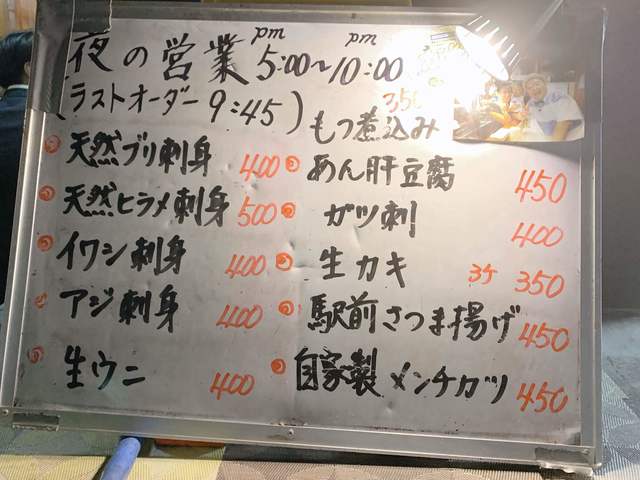 夜の営業 pm 5:00〜pm 10:00
(ラストオーダー 9:45)
天然ブリ刺身 400
天然ヒラメ刺身 500
イワシ刺身 400
アジ刺身 400
生ウニ 400
もつ煮込み 350
あん肝豆腐 450
ガツ刺 400
生カキ 3ケ 350
駅前さつま揚げ 450
自家製メンチカツ 450